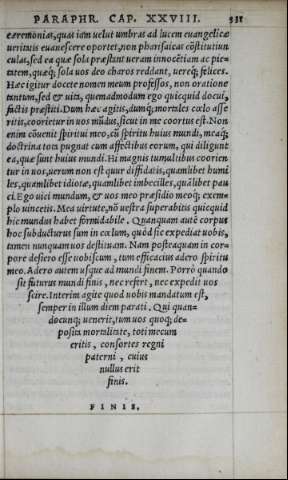 PARAPHR. CAP. XXVIII. 531
cæremonias, quas iam uelut umbras ad lucem euangelicæ
ueritatis euanescere oportet, non pharisaicas cōstitutiun
culas, sed ea quæ sola præstant ueram innocētiam ac pie-
tatem, quæq; sola uos deo charos reddant, uereq; felices.
Hæc igitur docete nomen meum professos, non oratione
tantum, sed & uita, quemadmodum ego quicquid docui,
factis præstiti. Dum hæc agitis, dumq; mortales cœlo asse
ritis, coorietur in uos mūdus, sicut in me coortus est. Non
enim cōuenit spiritui meo, cū spiritu huius mundi, meaq;
doctrina tota pugnat cum affectibus eorum, qui diligunt
ea, quæ sunt huius mundi. Hi magnis tumultibus coorien
tur in uos, uerum non est quur diffidatis, quamlibet humi
les, quamlibet idiotæ, quamlibet imbecilles, quālibet pau
ci. Ego uici mundum, & uos meo præsidio meoq; exem-
plo uincetis. Mea uirtute, nō uestra superabitis quicquid
hic mundus habet formidabile. Quanquam autē corpus
hoc subducturus sum in cœlum, quòd sic expediat uobis,
tamen nunquam uos destituam. Nam posteaquam in cor-
pore desiero esse uobiscum, tum efficacius adero spiritu
meo. Adero autem usque ad mundi finem. Porrò quando
sit futurus mundi finis, nec refert, nec expedit uos
scire. Interim agite quod uobis mandatum est,
semper in illum diem parati. Qui quan-
docunq; uenerit, tum uos quoq; de-
posita mortalitate, toti mecum
eritis, consortes regni
paterni, cuius
nullus erit
finis.
FINIS.